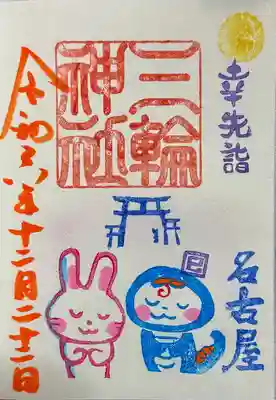 幸先詣
三輪
神社
名古屋
令和六年十二月二十二日